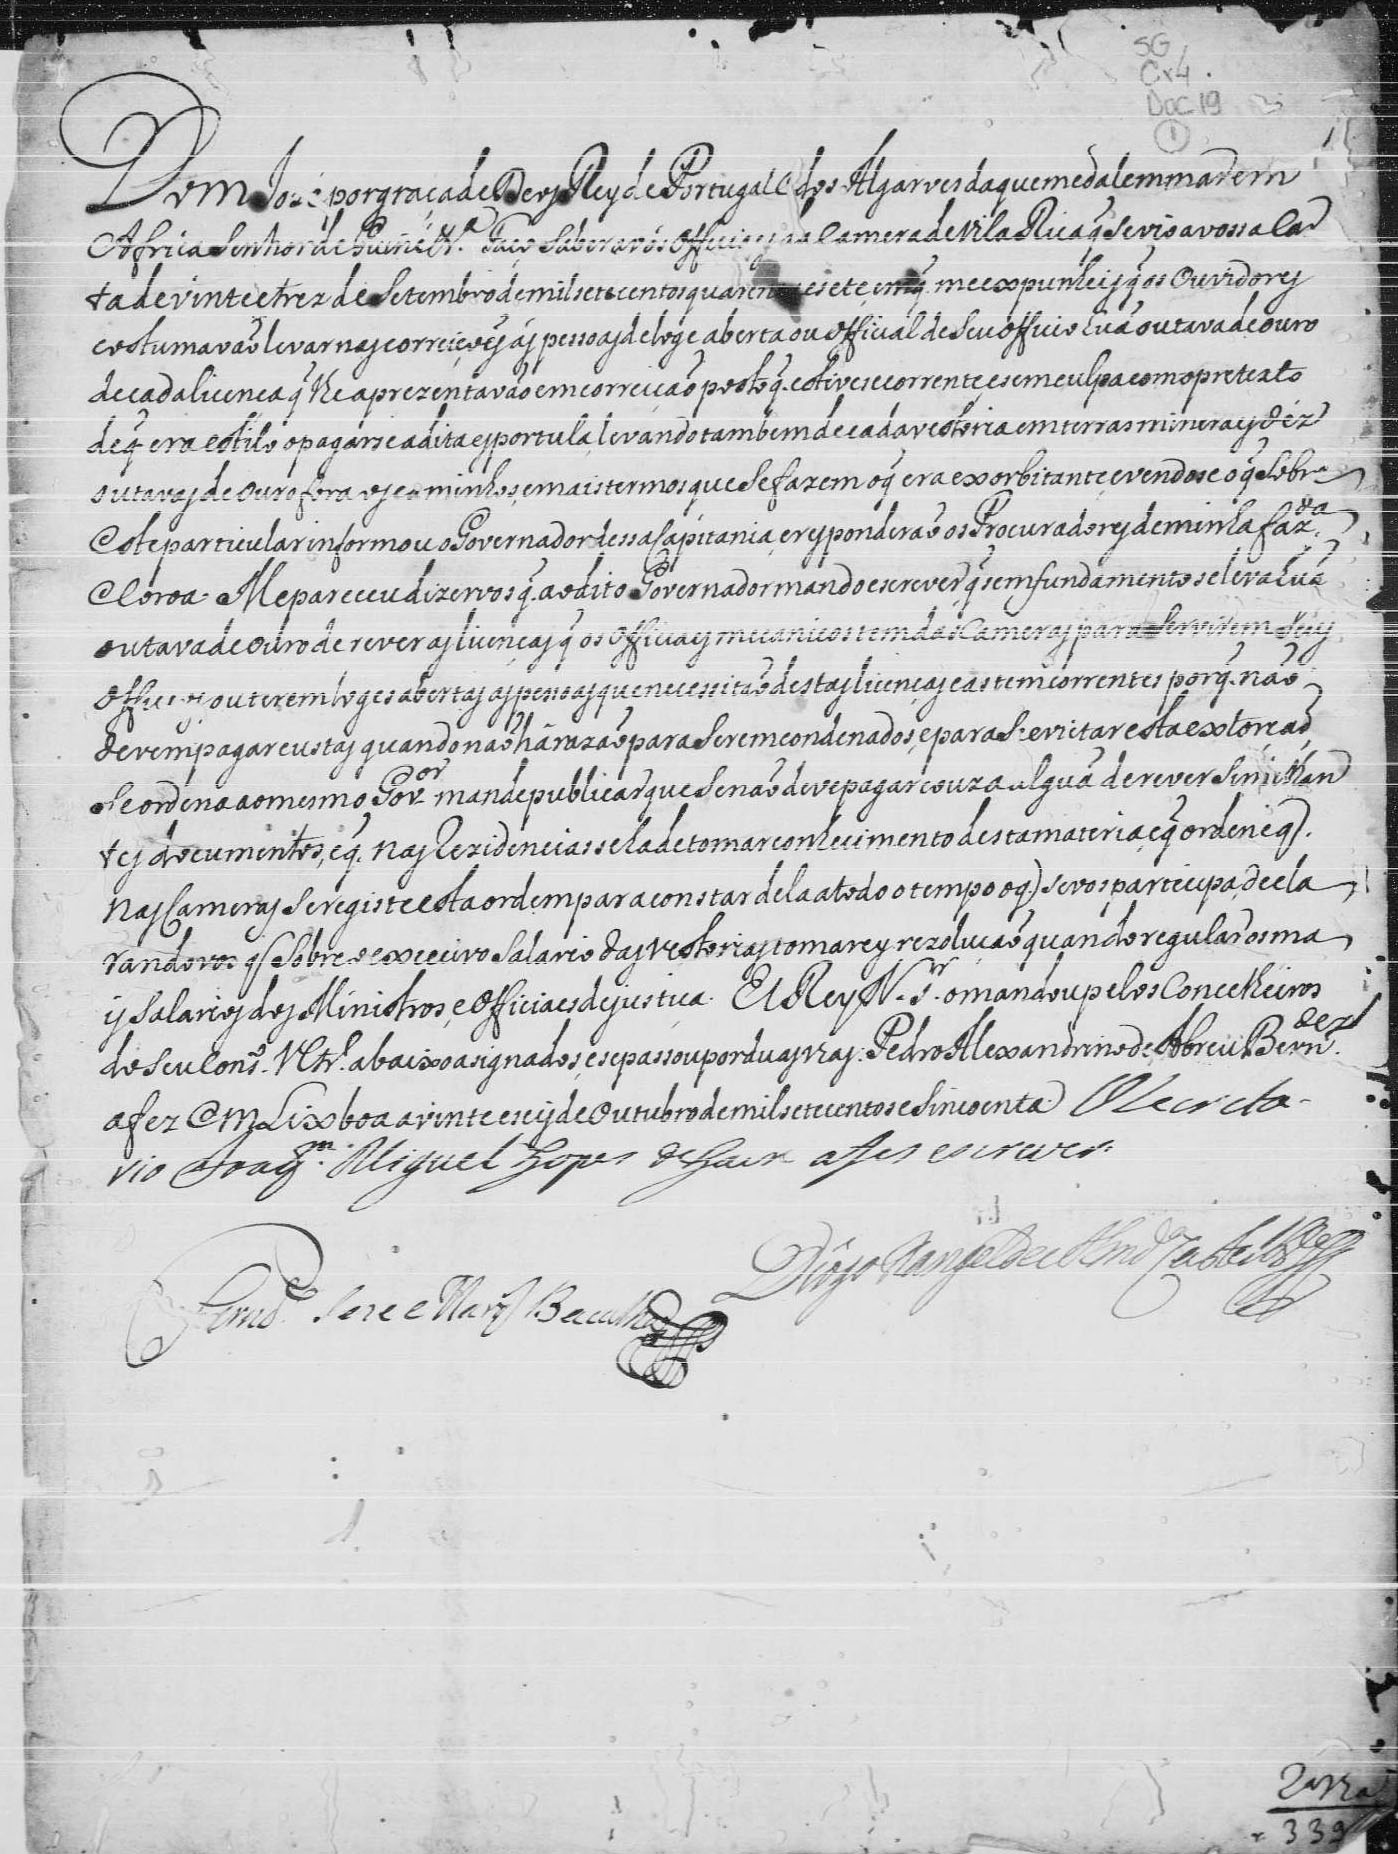 SG
Cx4
Doc 19
1
Dom José por graça de Deos Rey de Portugal e dos Algarves daquem e dalem mar em
Africa Senhor de Guiné &.ª Faço Saber a vós Officiaes da Camera de Vila Rica q̃ se vio a vossa Car
ta de vinte e trez de Setembro de mil setecentos quarenta e sete em q̃ me expunheis q̃ os Ouvidores
costumavaõ levar nas correiçoẽs ás pessoas de loge aberta ou Official de Seu Officio huã outava de ouro
de cada licença q̃ lhe aprezentavaõ em correiçaõ posto q̃ estivese corrente, e sem culpa com o pretexto
de q̃ era estilo o pagarse a dita esportula, levando tambem de cada vestoria em terras mineraes déz
outavas de ouro fora os caminhos, e mais termos que se fazem o q̃ era exorbitante, e vendose o q̃ Sobre
este particular informou o Governador dessa Capitania, e responderaõ os Procuradores de minha faz.da
e Coroa. Me pareceu dizervos q̃ ao dito Governador mando escrever q̃ sem fundamento se leva huã
outava de ouro de rever as licenças q̃ os Officiaes mecanicos tem das Cameras para Servirem Seus
Officios ou terem loges abertas as pessoas que necessitaõ destas licenças e as tem correntes porq̃ naõ
devem pagar custas quando naõ há razaõ para Serem condenados, e para Se evictar esta extorçaõ
Se ordena ao mesmo Gov.or mande publicar que Se naõ deve pagar couza alguã de rever Simelhan
tes documentos, e q̃ nas Rezidencias se ha de tomar conhecimento desta materia, e q̃ ordene q̃
nas Cameras Se registe esta ordem para constar dela a todo o tempo o q̃ se vos participa, decla
randovos q̃ Sobre o excecivo Salario das vestorias tomarey rezoluçaõ quando regular os ma
is Salarios dos Ministros, e Officiaes de justiça. El Rey N. Sr. o mandou pelos Concelheiros
do Seu Cons.º Ultr.º abaixo asignados, e se passou por duas vias. Pedro Alexandrino de Abreu Bern.dez
a fez em Lixboa a vinte e seis de Outubro de mil setecentos e Sincoenta O Secreta-
rio Joaq.m Miguel Lopes de Lavre a fes escrever.
Diogo Rangel de Alm.da Castel Br.co
Fern.do Joze Marq.s Bacalhao
339